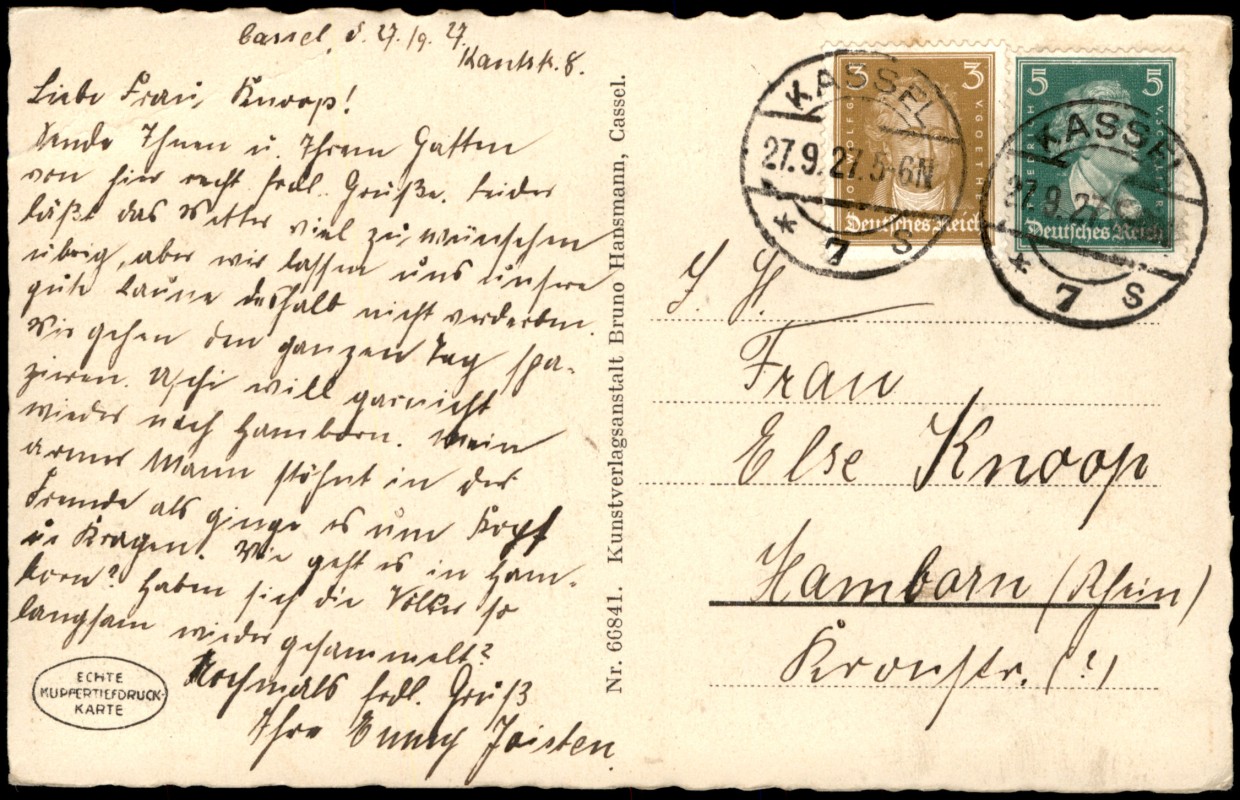 Cassel, d. 27./9. 27.
Kantstr. 8.
Liebe Frau Knoop!
Sende Ihnen u. Ihrem Gatten
von hier recht frdl. Grüße. Leider
läßt das Wetter viel zu wünschen
übrig, aber wir lassen uns unsere
gute Laune deshalb nicht verderben.
Wir gehen den ganzen Tag spa-
zieren. Uschi will garnicht
wieder nach Hamborn. Mein
armer Mann stöhnt in der
Fremde als ginge es um Kopf
u. Kragen. Wie geht es in Ham-
born? Haben sich die Völker so
langsam wieder gesammelt?
Nochmals frdl. Gruß
Ihre Emmy Joisten
ECHTE
KUPFERTIEFDRUCK-
KARTE
Nr. 66841. Kunstverlagsanstalt Bruno Hansmann, Cassel.
3 3
Deutsches Reich
KASSEL
27.9.27.5-6N
* 7 S
5 5
Deutsches Reich
KASSEL
27.9.27.
* 7 S
Frau
Else Knoop
Hamborn (Rhein)
Kronstr. (?)